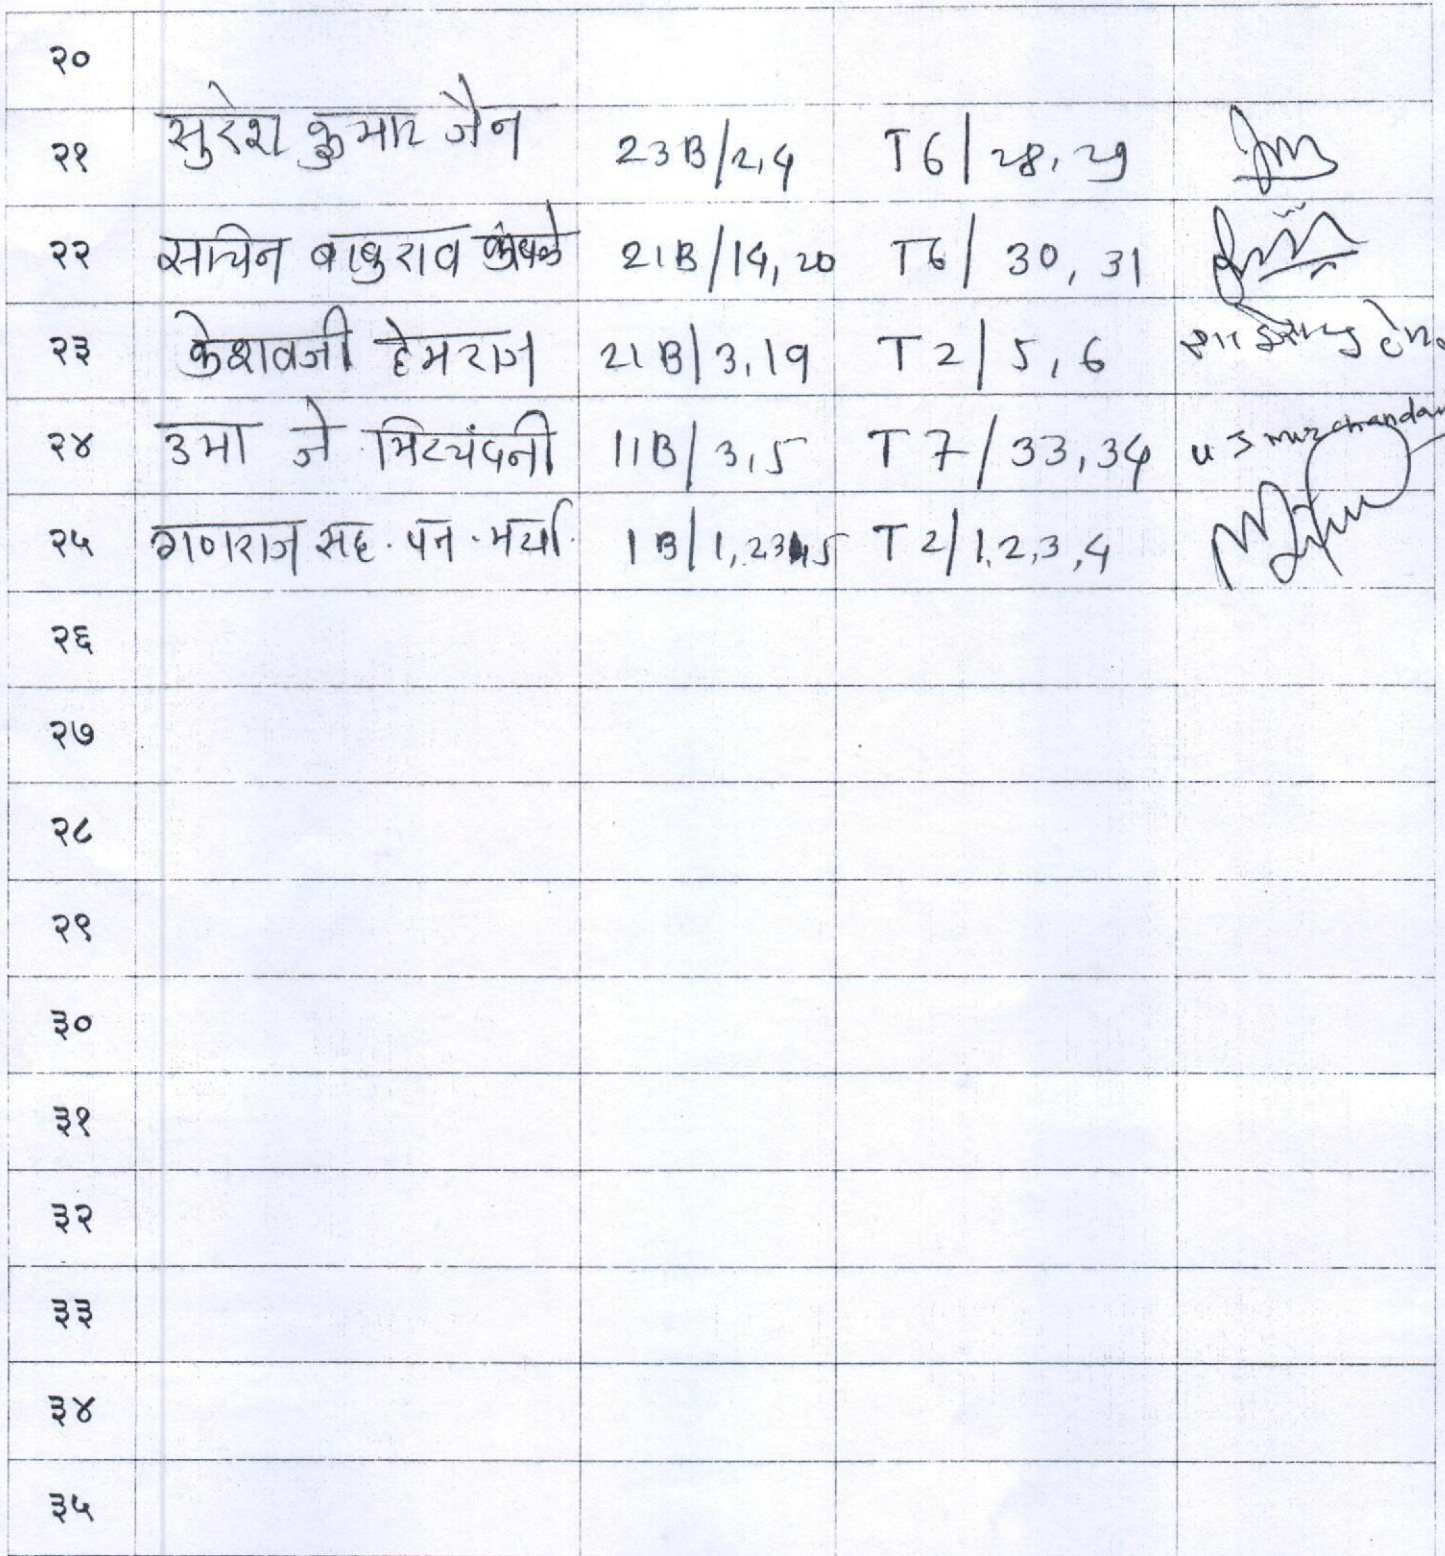 २०
२१ सुरेश कुमार जैन 23B/2,4 T6/28,29
२२ सचिन बाबुराव 21B/14,20 T6/30,31
२३ केशवजी हेमराज 21B/3,19 T2/5,6
२४ उमा जे मिरचंदनी 11B/3,5 T7/33,34 U J mirchandani
२५ गणराज सह. पत. मर्या. 1B/1,2345 T2/1,2,3,4
२६
२७
२८
२९
३०
३१
३२
३३
३४
३५